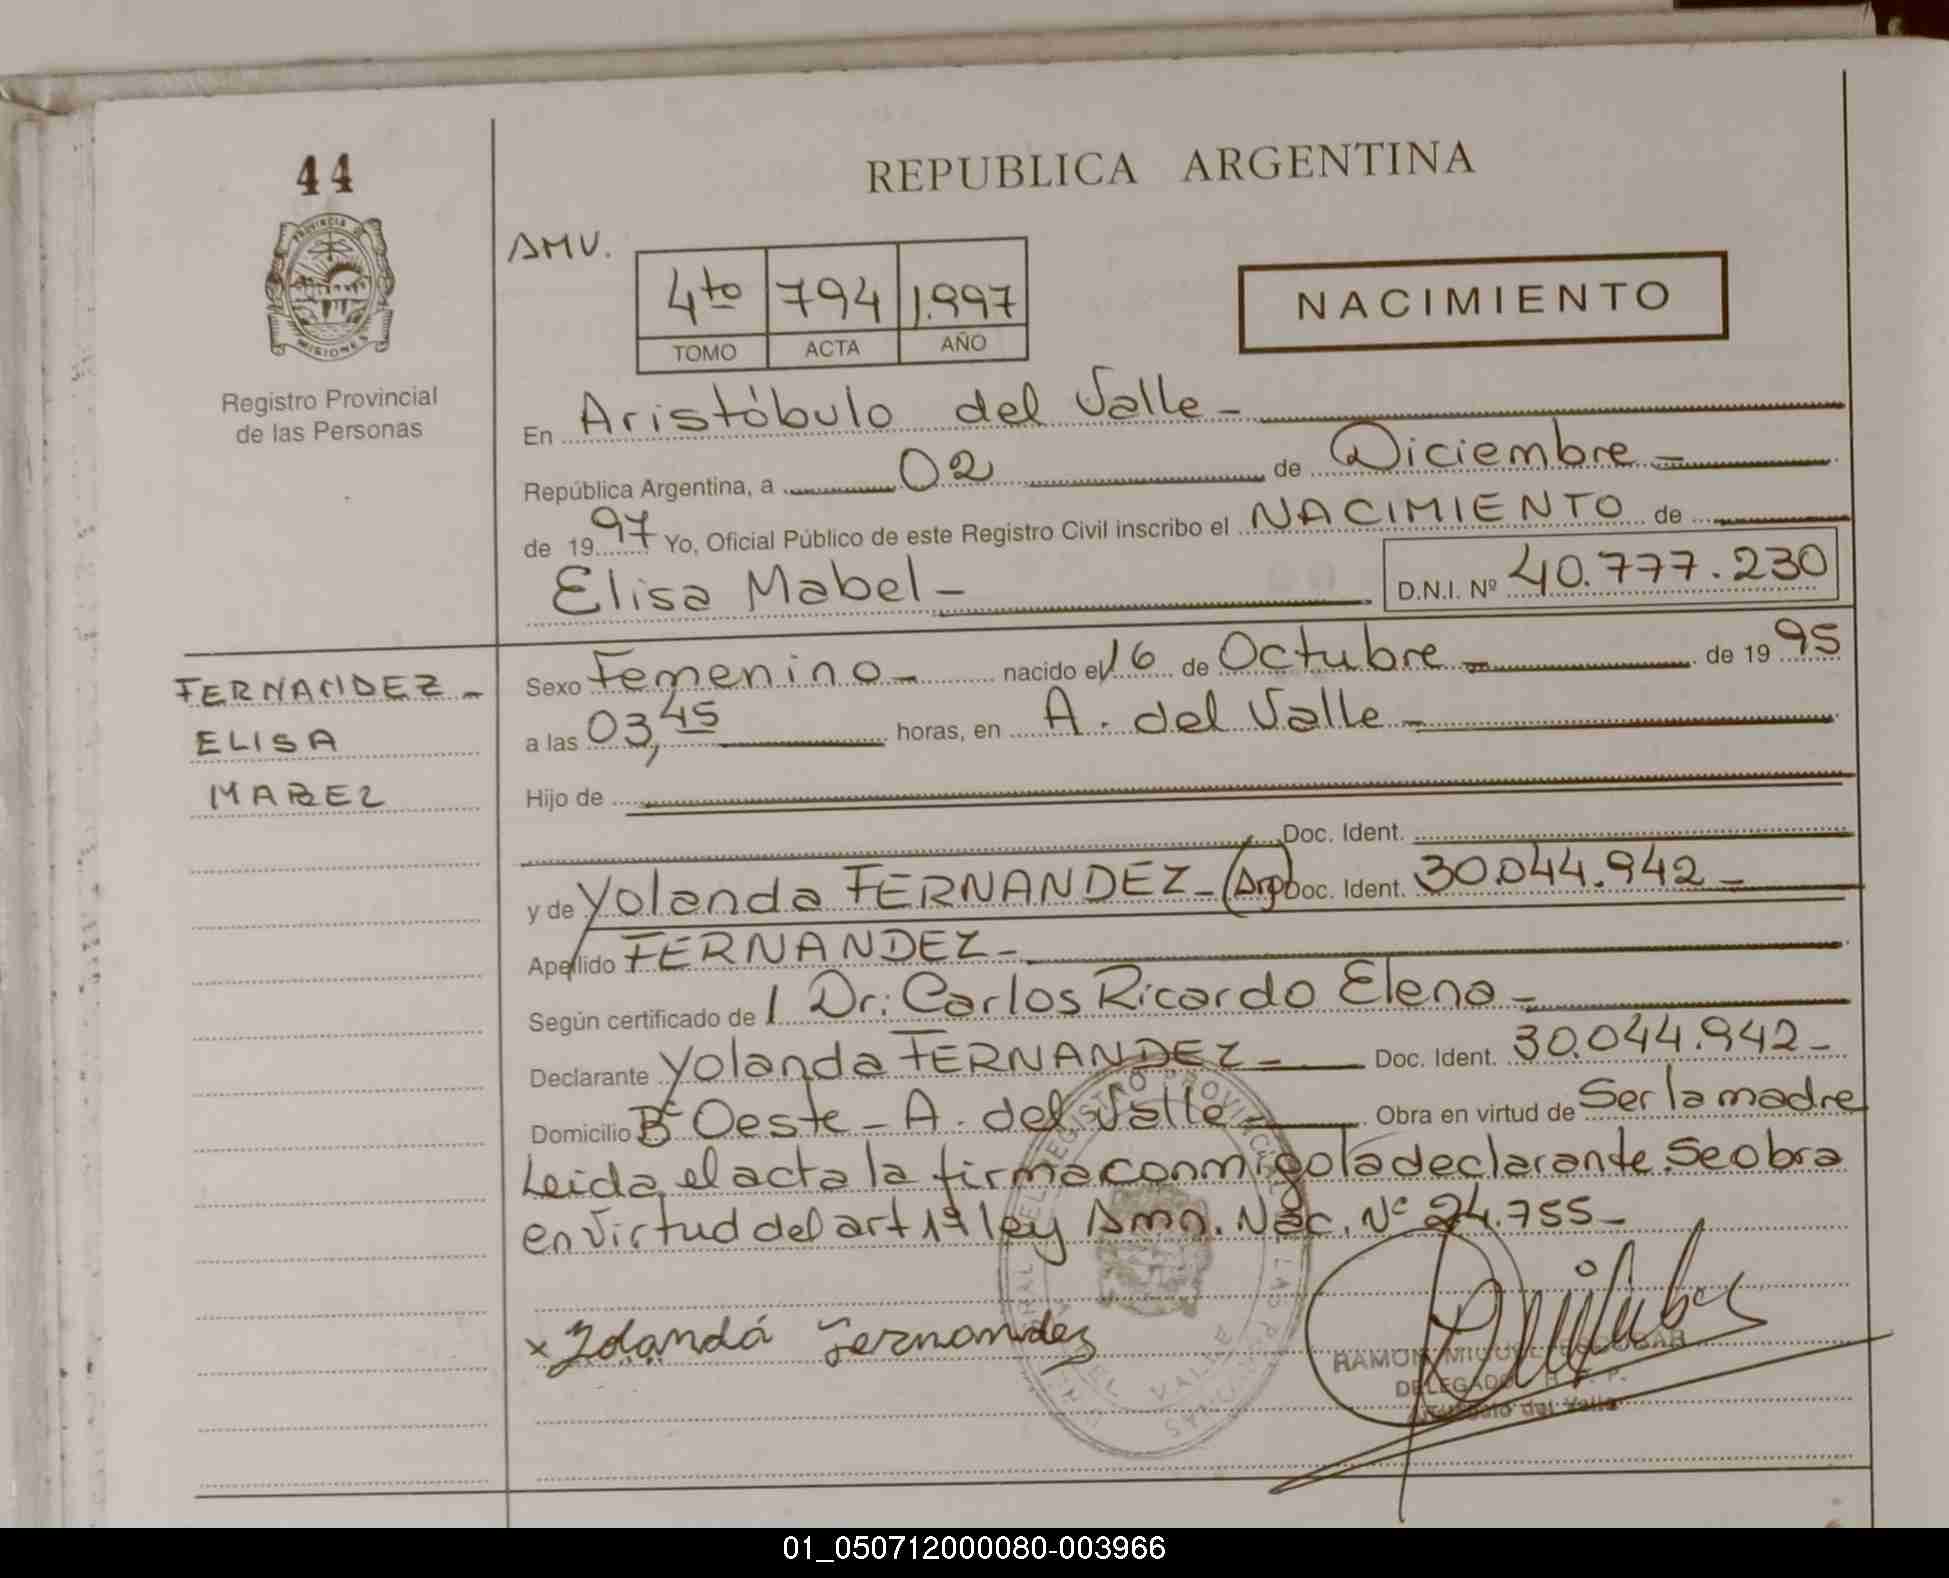 44
REPUBLICA ARGENTINA
PROVINCIA DE
MISIONES
Registro Provincial
de las Personas
AMV.
4to 794 1.997
TOMO ACTA AÑO
NACIMIENTO
En Aristóbulo del Valle -
República Argentina, a 02 de Diciembre -
de 1997 Yo, Oficial Público de este Registro Civil inscribo el NACIMIENTO de
Elisa Mabel - D.N.I. Nº 40.777.230
FERNANDEZ -
ELISA
MABEL
Sexo Femenino - nacido el 16 de Octubre - de 1995
a las 03,45 horas, en A. del Valle -
Hijo de
Doc. Ident.
y de Yolanda FERNANDEZ - (Arg) Doc. Ident. 30.044.942 -
Apellido FERNANDEZ -
Según certificado de l Dr: Carlos Ricardo Elena -
Declarante Yolanda FERNANDEZ - Doc. Ident. 30.044.942 -
Domicilio Bº Oeste - A. del Valle - Obra en virtud de Ser la madre
Leida el acta la firma conmigo la declarante. Se obra
en virtud del art 1º ley Amn. Nac. Nº 24.755 -
x Yolanda Fernandez
RAMON MIGUEL ESCOBAR
DELEGADO R. P. P.
Aristóbulo del Valle
REGISTRO PROVINCIAL DE LAS PERSONAS
DEL VALLE
01_050712000080-003966